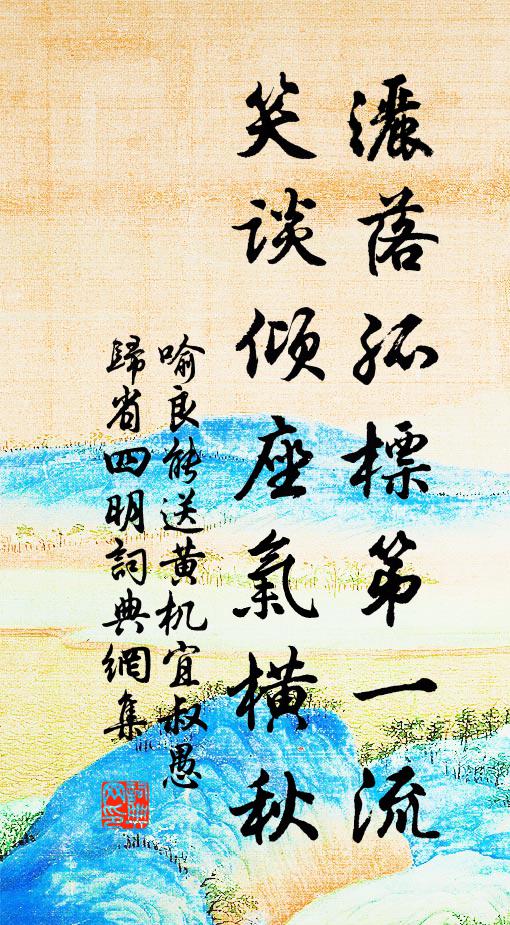 灑落孤標第一流
笑談傾座氣橫秋
喻良能送黄机宜叔愚
歸省四明詞典網集